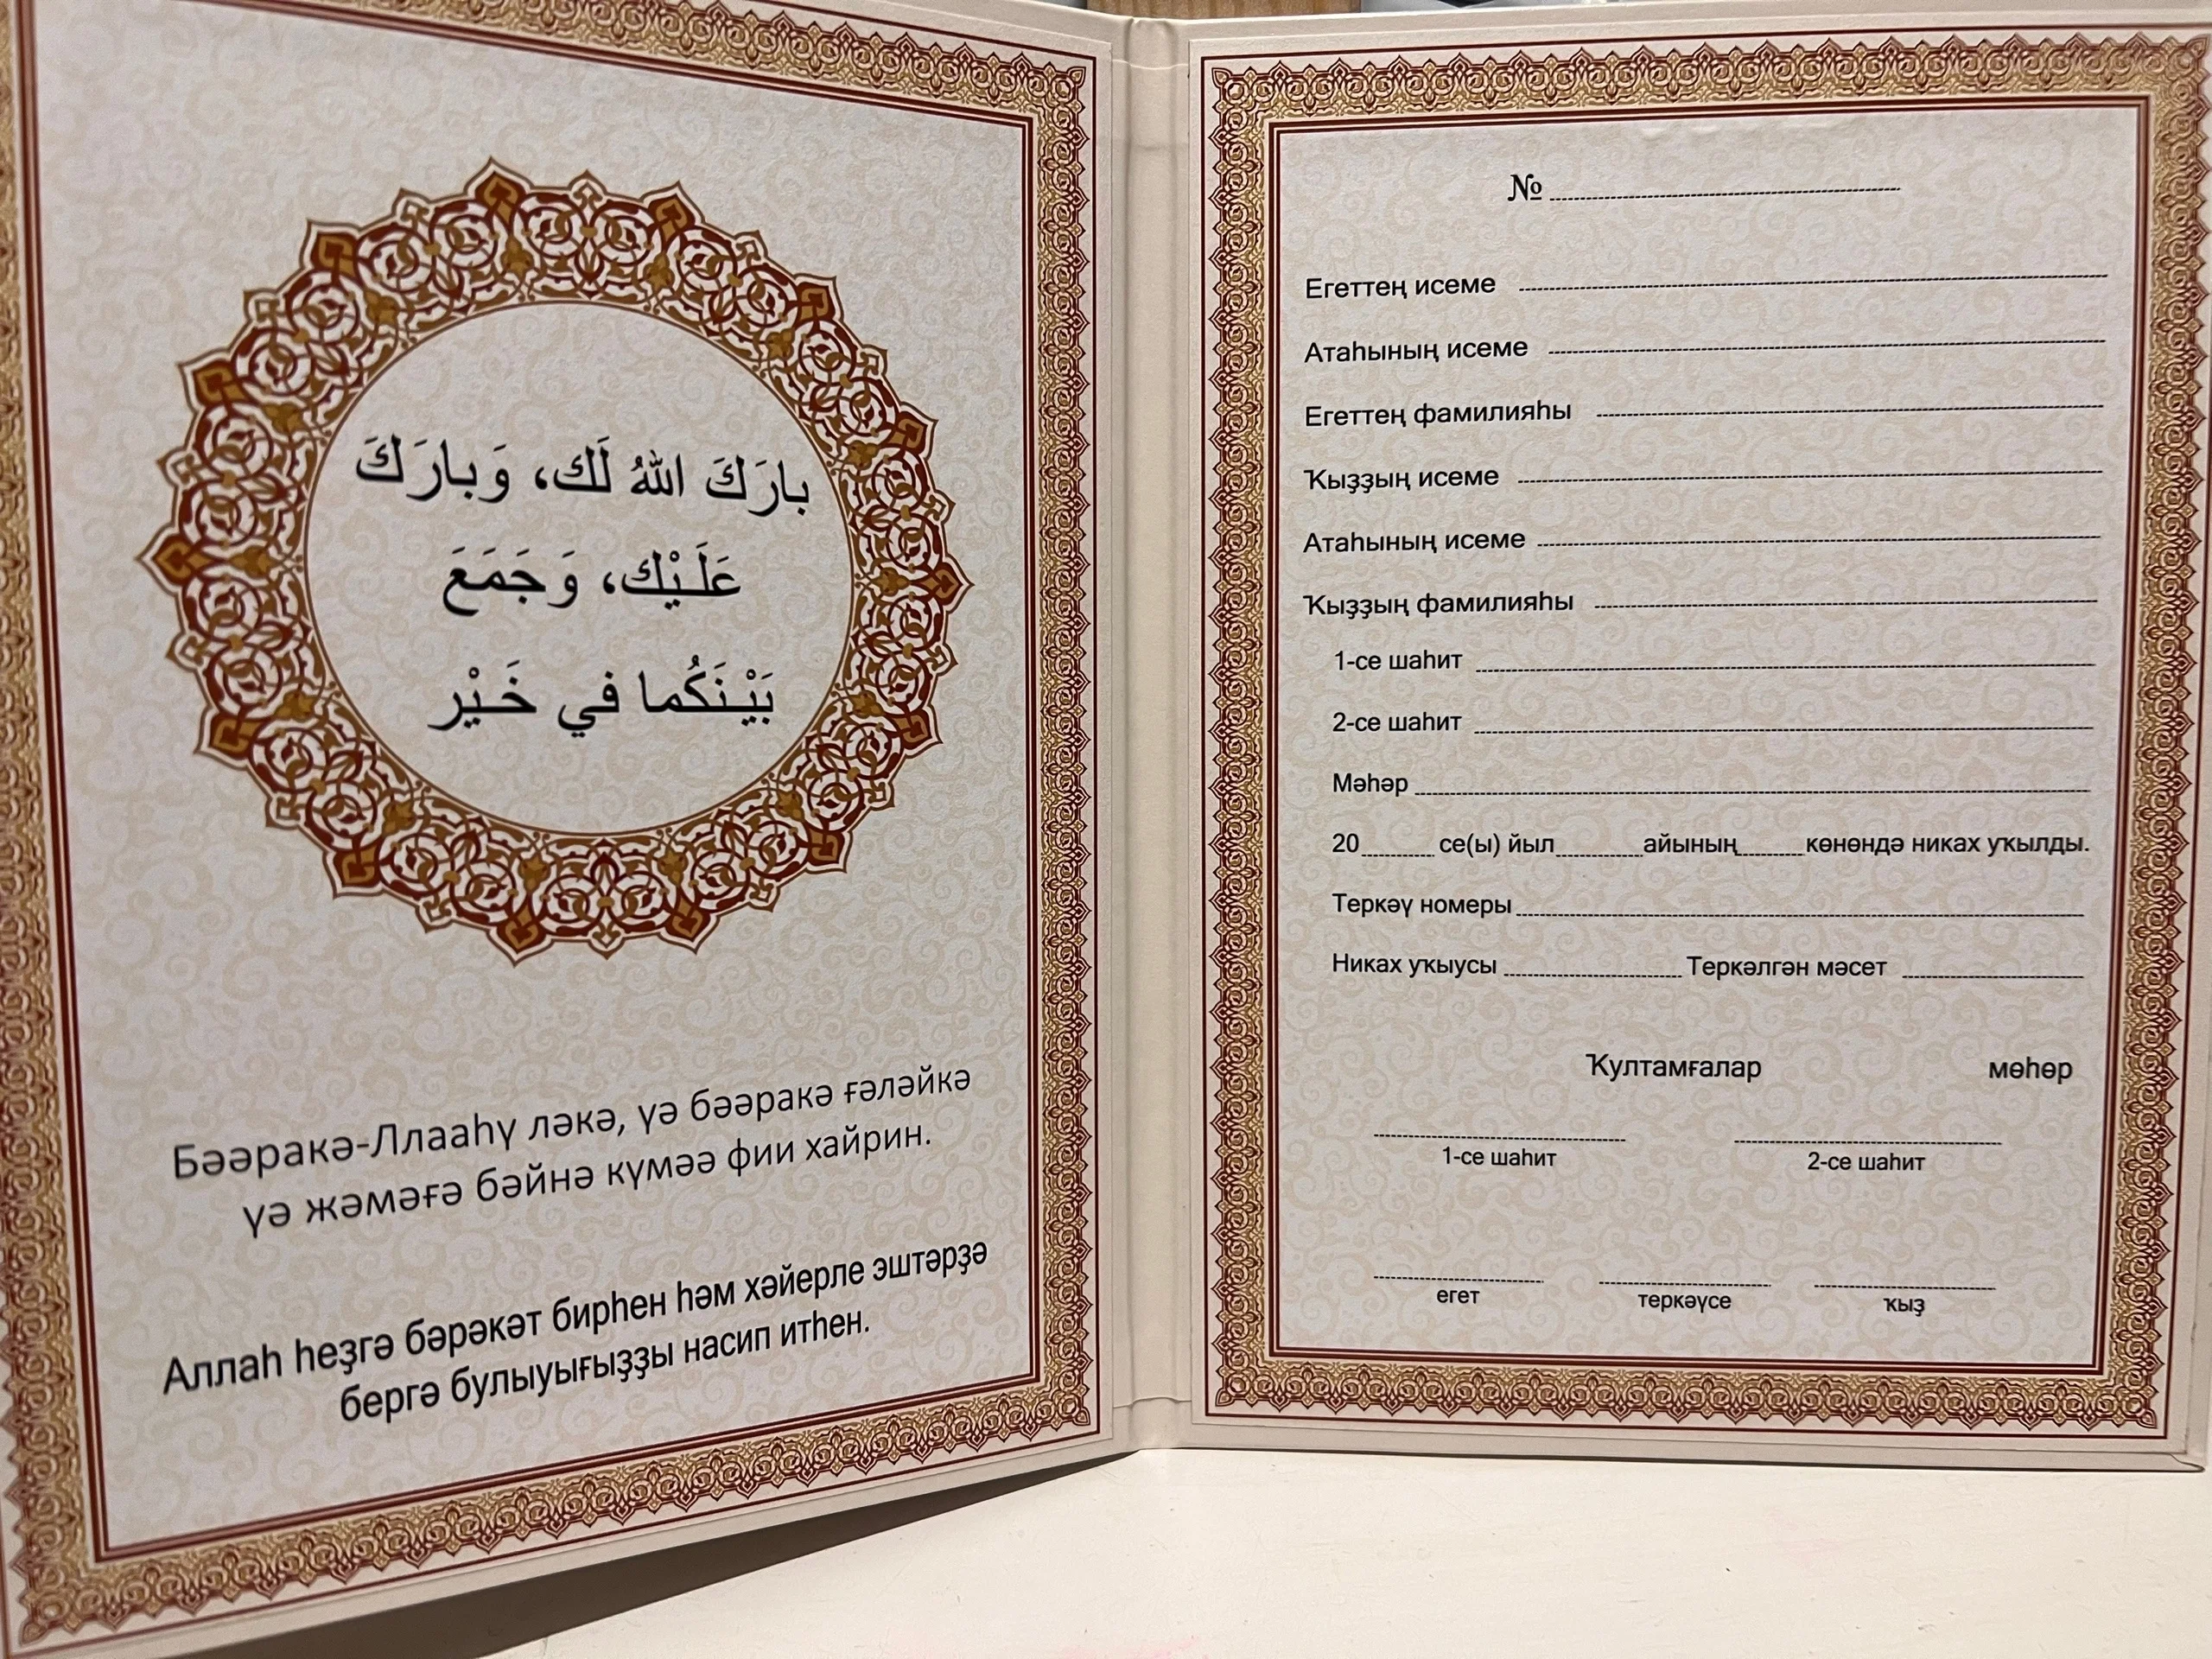 بارَكَ اللهُ لَك، وَبارَكَ
عَلَـيْك، وَجَمَعَ
بَيْـنَكُما في خَـيْر
Бәәракә-Ллааһү ләкә, үә бәәракә ғәләйкә
үә жәмәғә бәйнә күмәә фии хайрин.
Аллаһ һеҙгә бәрәкәт бирһен һәм хәйерле эштәрҙә
бергә булыуығыҙҙы насип итһен.
№
Егеттең исеме
Атаһының исеме
Егеттең фамилияһы
Ҡыҙҙың исеме
Атаһының исеме
Ҡыҙҙың фамилияһы
1-се шаһит
2-се шаһит
Мәһәр
20 се(ы) йыл айының көнөндә никах уҡылды.
Теркәү номеры
Никах уҡыусы Теркәлгән мәсет
Ҡултамғалар мөһөр
1-се шаһит 2-се шаһит
егет теркәүсе ҡыҙ